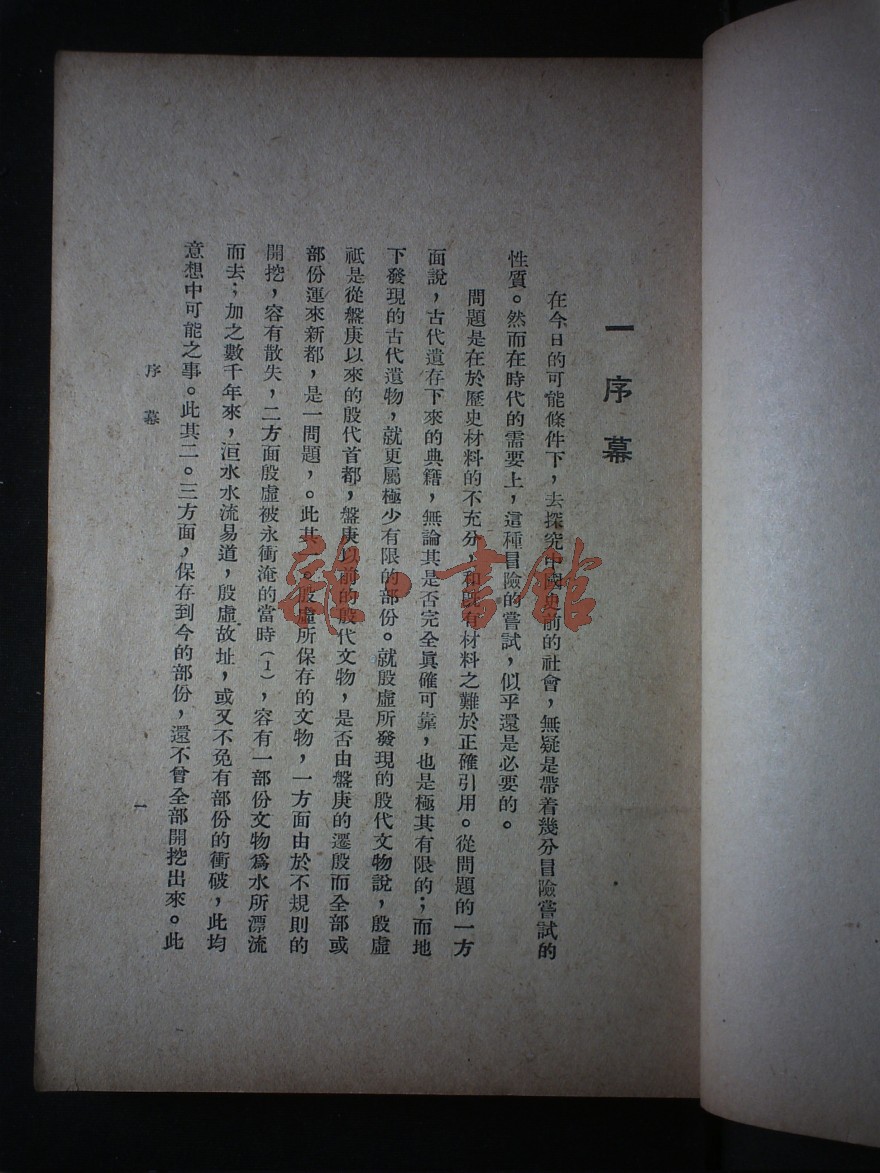 一 序幕
在今日的可能條件下，去探究中國史前的社會，無疑是帶着幾分冒險嘗試的
性質。然而在時代的需要上，這種冒險的嘗試，似乎還是必要的。
問題是在於歷史材料的不充分，和既有材料之難於正確引用。從問題的一方
面說，古代遺存下來的典籍，無論其是否完全眞確可靠，也是極其有限的；而地
下發現的古代遺物，就更屬極少有限的部份。就殷虛所發現的殷代文物說，殷虛
祇是從盤庚以來的殷代首都，盤庚以前的殷代文物，是否由盤庚的遷殷而全部或
部份運來新都，是一問題，。此其一。殷虛所保存的文物，一方面由於不規則的
開挖，容有散失，二方面殷虛被永衝淹的當時（1），容有一部份文物爲水所漂流
而去；加之數千年來，洹水水流易道，殷虛故址，或又不免有部份的衝破，此均
意想中可能之事。此其二。三方面，保存到今的部份，還不曾全部開挖出來。此
序幕
一
龍一書館